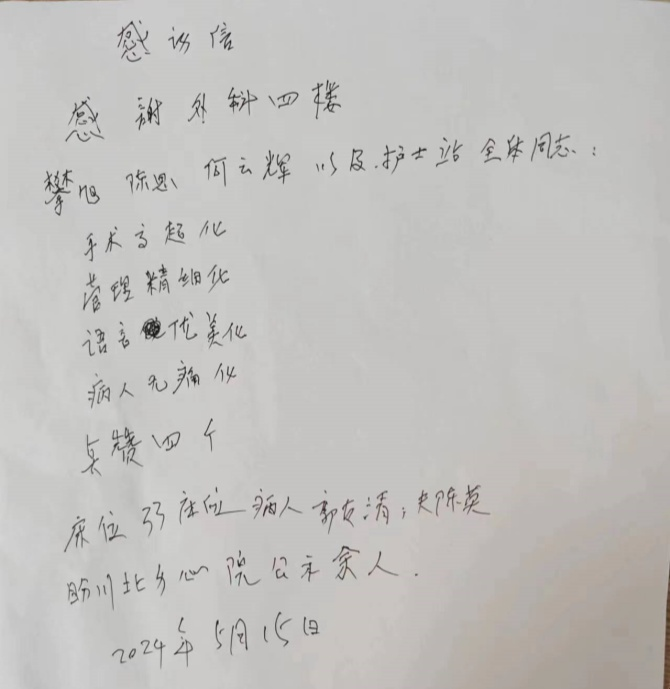 感谢信
感謝外科四楼
攀旭 陈思 何云辉 以及护士站全体同志：
手术高超化
管理精细化
语言优美化
病人无痛化
点赞四个
床位 33床位 病人 郭友清；夫陈英
川北乡心院公示余人.
2024年5月15日